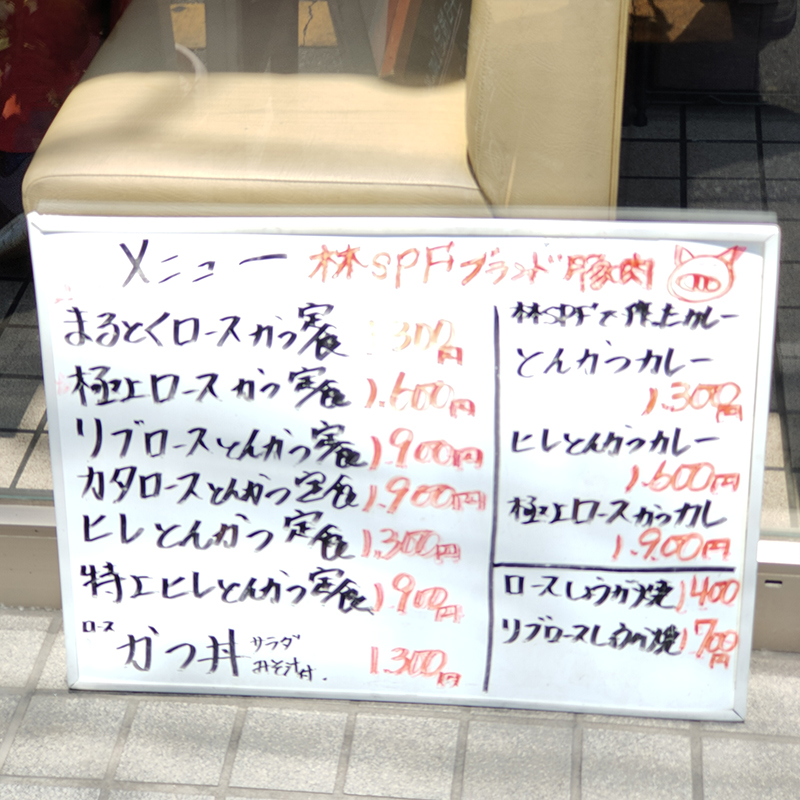 メニュー 林SPFブランド豚肉
まるとくロースかつ定食 1.300円
極上ロースかつ定食 1.600円
リブロースとんかつ定食 1.900円
カタロースとんかつ定食 1.900円
ヒレとんかつ定食 1.300円
特上ヒレとんかつ定食 1.900円
ロース
かつ丼 サラダ
みそ汁付. 1.300円
林SPFで作ったカレー
とんかつカレー
1.300円
ヒレとんかつカレー
1.600円
極上ロースかつカレー
1.900円
ロースしょうが焼 1400
リブロースしょうが焼 1700円